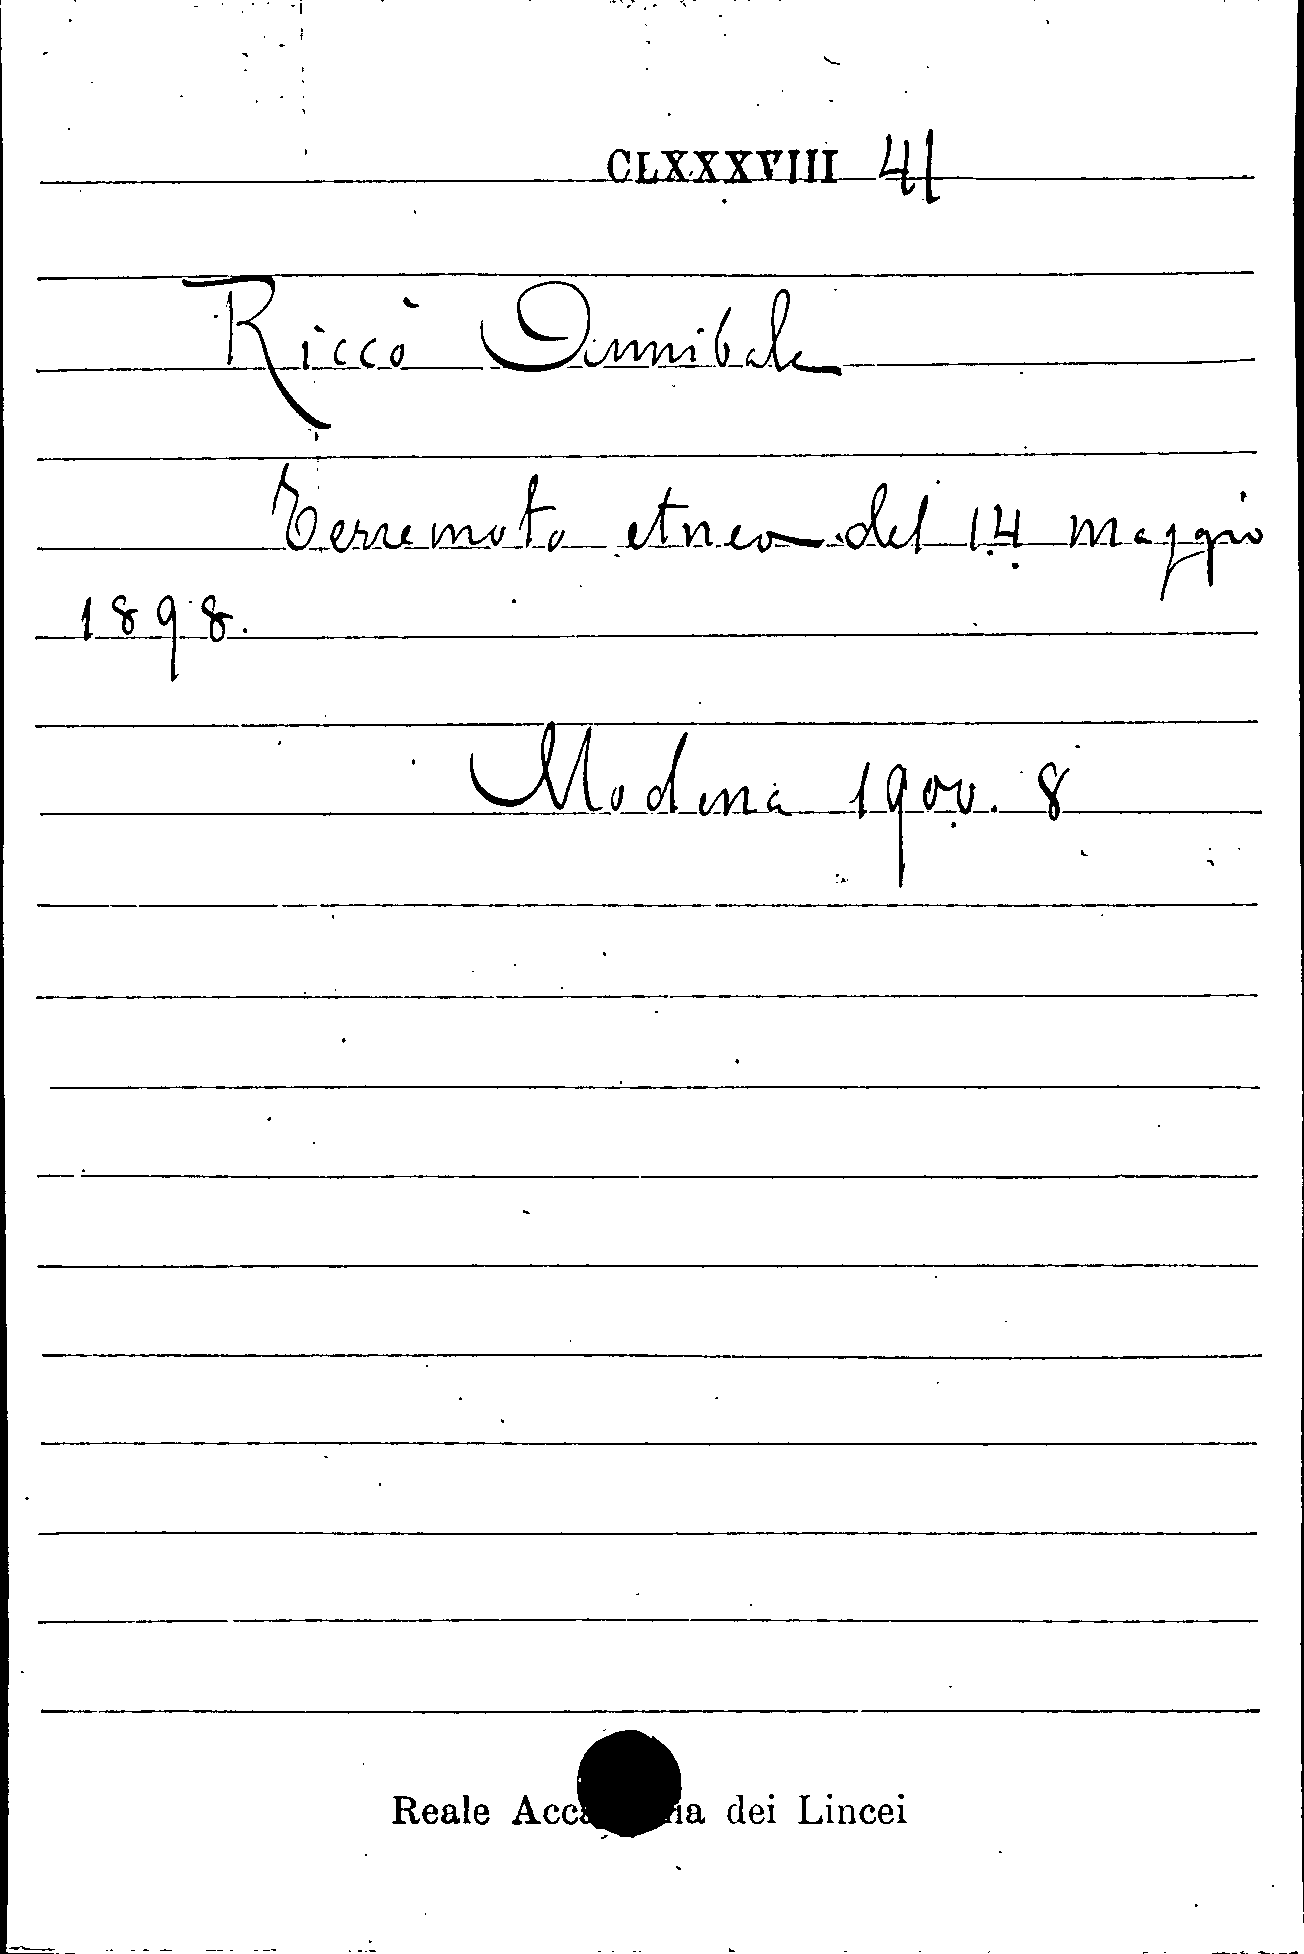 CLXXXVIII 41
Riccò Annibale
Terremoto etneo del 14 maggio
1898.
Modena 1900. 8
Reale Acca ia dei Lincei